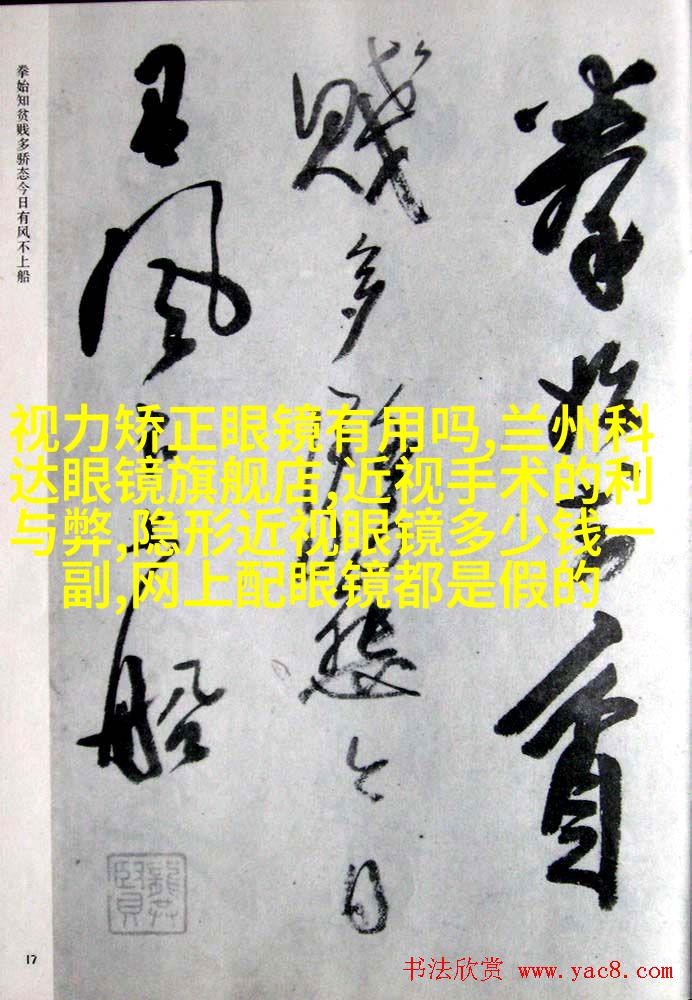 拳始知贫贱多骄态今日有风不上船
拳始知貧
賤多驕態今日
有風不上船
视力矫正眼镜有用吗,兰州科
达眼镜旗舰店,近视手术的利
与弊,隐形近视眼镜多少钱一
副,网上配眼镜都是假的
17
书法欣赏 www.yac8.com